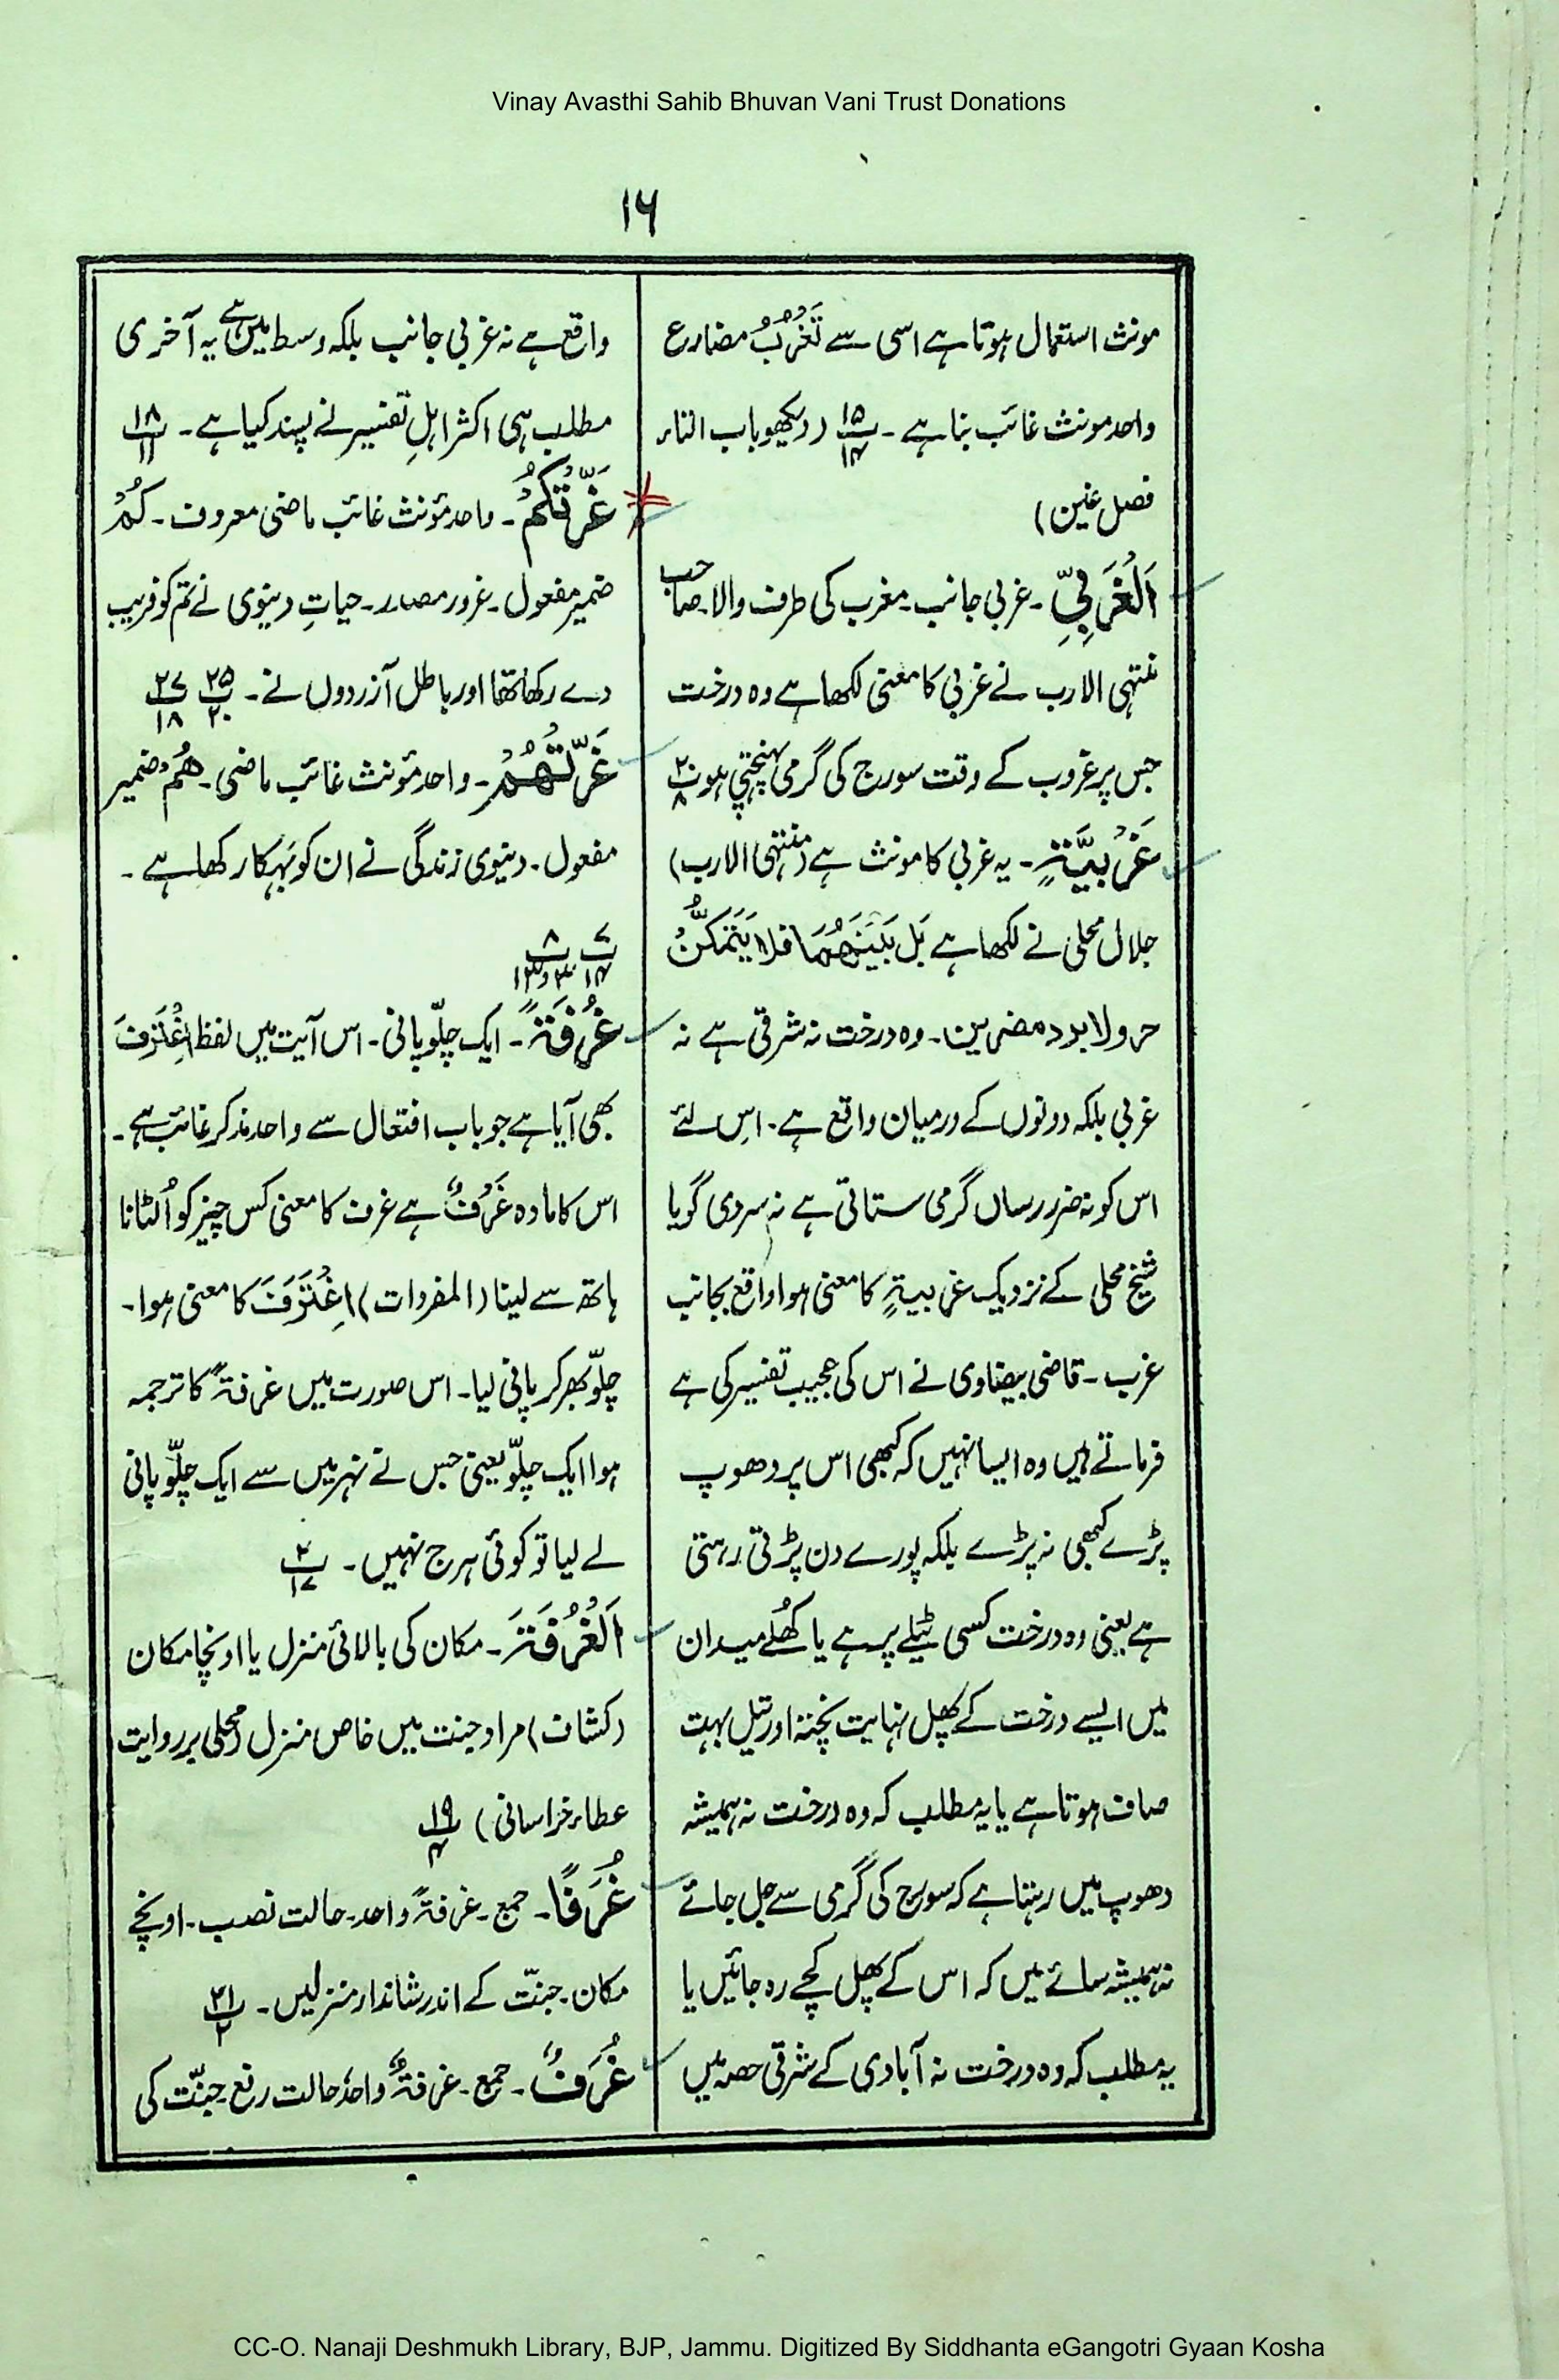 Vinay Avasthi Sahib Bhuvan Vani Trust Donations
۱۶
مونث استعمال ہوتا ہے اسی سے تَغْرُبُ مضارع
واحد مونث غائب بنا ہے۔ پ ۱۵ / ۱۴ (دیکھو باب التاء
فصل غین)
اَلْغَرْبِیِّ۔ غربی جانب۔ مغرب کی طرف والا۔ صاحب
منتہی الارب نے غربی کا معنی لکھا ہے وہ درخت
جس پر غروب کے وقت سورج کی گرمی پہنچتی ہو پ ۲۰ / ۸
غَرْبِیَّۃٍ۔ یہ غربی کا مونث ہے (منتہی الارب)
جلال محلی نے لکھا ہے بَل بَیْنَھُمَا فلا یَتَمَکَّنُ
حر ولا برد مضرین۔ وہ درخت نہ شرقی ہے نہ
غربی بلکہ دونوں کے درمیان واقع ہے۔ اس لئے
اس کو نہ ضرر رساں گرمی ستاتی ہے نہ سردی گویا
شیخ محلی کے نزدیک غربیۃٍ کا معنی ہوا واقع بجانب
غرب۔ قاضی بیضاوی نے اس کی عجیب تفسیر کی ہے
فرماتے ہیں وہ ایسا نہیں کہ کبھی اس پر دھوپ
پڑے کبھی نہ پڑے بلکہ پورے دن پڑتی رہتی
ہے یعنی وہ درخت کسی ٹیلے پر ہے یا کھُلے میدان
میں ایسے درخت کے پھل نہایت پختہ اور تیل بہت
صاف ہوتا ہے یا یہ مطلب کہ وہ درخت نہ ہمیشہ
دھوپ میں رہتا ہے کہ سورج کی گرمی سے جل جائے
نہ ہمیشہ سائے میں کہ اس کے پھل کچے رہ جائیں یا
یہ مطلب کہ وہ درخت نہ آبادی کے شرقی حصہ میں
واقع ہے نہ غربی جانب بلکہ وسط میں ہے یہ آخری
مطلب ہی اکثر اہلِ تفسیر نے پسند کیا ہے۔ پ ۱۸ / ۱۱
غَرَّتْکُمُ۔ واحد مؤنث غائب ماضی معروف۔ کُمْ
ضمیر مفعول۔ غرور مصدر۔ حیاتِ دنیوی نے تم کو فریب
دے رکھا تھا اور باطل آرزوؤں نے۔ پ ۲۵ / ۲۰ پ ۲۷ / ۱۸
غَرَّتْھُمُ۔ واحد مؤنث غائب ماضی۔ ھُمْ ضمیر
مفعول۔ دنیوی زندگی نے ان کو بہکا رکھا ہے۔
پ ۷ / ۱۴ پ ۸
غُرْفَۃً۔ ایک چلّو پانی۔ اس آیت میں لفظ اِغْتَرَفَ
بھی آیا ہے جو باب افتعال سے واحد مذکر غائب ہے۔
اس کا مادہ غَرْفٌ ہے غرف کا معنی کس چیز کو اُٹھانا
ہاتھ سے لینا (المفردات) اِغْتَرَفَ کا معنی ہوا۔
چلّو بھر کر پانی لیا۔ اس صورت میں غرفۃً کا ترجمہ
ہوا ایک چلّو یعنی جس نے نہر میں سے ایک چلّو پانی
لے لیا تو کوئی ہرج نہیں۔ پ ۲ / ۱۷
اَلْغُرْفَۃَ۔ مکان کی بالائی منزل یا اونچا مکان
(کشاف) مراد جنت میں خاص منزل (محلی بر روایت
عطاء خراسانی) پ ۱۹ / ۴
غُرَفًا۔ جمع۔ غرفۃٌ واحد۔ حالت نصب۔ اونچے
مکان۔ جنّت کے اندر شاندار منزلیں۔ پ ۲۱ / ۲
غُرَفٌ۔ جمع۔ غرفۃٌ واحد حالت رفع۔ جنّت کی
CC-O. Nanaji Deshmukh Library, BJP, Jammu. Digitized By Siddhanta eGangotri Gyaan Kosha